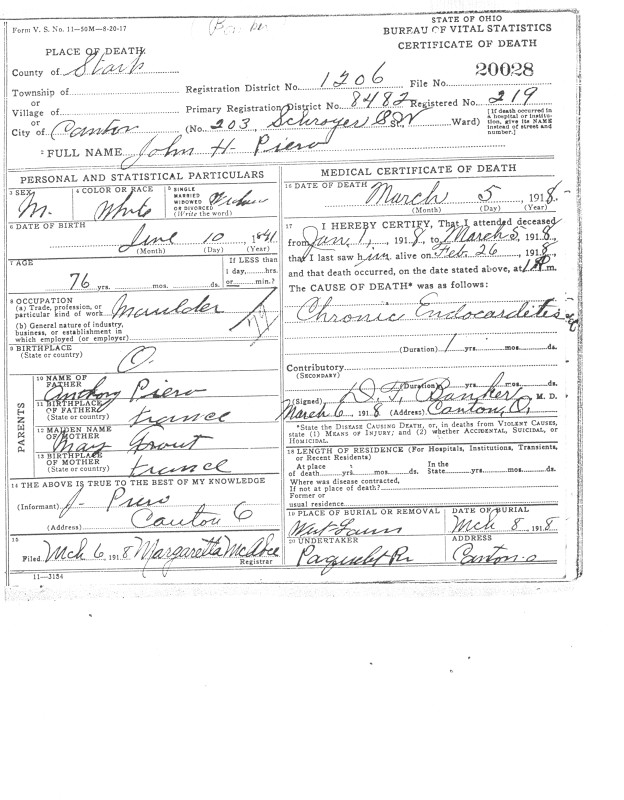 Form V. S. No. 11-50M-8-20-17
STATE OF OHIO
BUREAU OF VITAL STATISTICS
CERTIFICATE OF DEATH
PLACE OF DEATH
County of Stark
Township of
or
Village of
or
City of Canton
Registration District No. 1206 File No. 20028
Primary Registration District No. 8482 Registered No. 219
(No. 203, Schroyer S W St., Ward)
[If death occurred in a hospital or institution, give its NAME instead of street and number.]
2 FULL NAME John H. Piero
PERSONAL AND STATISTICAL PARTICULARS
3 SEX M.
4 COLOR OR RACE White
5 SINGLE MARRIED WIDOWED OR DIVORCED (Write the word)
6 DATE OF BIRTH
June 10 1841
(Month) (Day) (Year)
7 AGE
76 yrs. mos. ds.
If LESS than 1 day, hrs. or min.?
8 OCCUPATION
(a) Trade, profession, or particular kind of work Moulder
(b) General nature of industry, business, or establishment in which employed (or employer)
9 BIRTHPLACE (State or country) O.
PARENTS
10 NAME OF FATHER Anthony Piero
11 BIRTHPLACE OF FATHER (State or country) France
12 MAIDEN NAME OF MOTHER Mary
13 BIRTHPLACE OF MOTHER (State or country) France
14 THE ABOVE IS TRUE TO THE BEST OF MY KNOWLEDGE
(Informant) J. Piero
(Address) Canton O
15
Filed Mch 6, 1918 Margaretta McAbee
Registrar
11-3184
MEDICAL CERTIFICATE OF DEATH
16 DATE OF DEATH March 5 1918
(Month) (Day) (Year)
17 I HEREBY CERTIFY, That I attended deceased
from Jan. 1, 1918, to March 5, 1918,
that I last saw him alive on Feb. 26, 1918,
and that death occurred, on the date stated above, at m.
The CAUSE OF DEATH* was as follows:
Chronic Endocarditis
(Duration) 1 yrs. mos. ds.
Contributory
(SECONDARY)
(Duration) yrs. mos. ds.
(Signed) D. F. Banker, M. D.
March 6, 1918 (Address) Canton, O.
*State the DISEASE CAUSING DEATH, or, in deaths from VIOLENT CAUSES, state (1) MEANS OF INJURY; and (2) whether ACCIDENTAL, SUICIDAL, or HOMICIDAL.
18 LENGTH OF RESIDENCE (For Hospitals, Institutions, Transients, or Recent Residents)
At place of death yrs. mos. ds. In the State yrs. mos. ds.
Where was disease contracted,
If not at place of death?
Former or
usual residence
19 PLACE OF BURIAL OR REMOVAL
West Lawn
DATE OF BURIAL
Mch 8 1918
20 UNDERTAKER
ADDRESS
Canton O